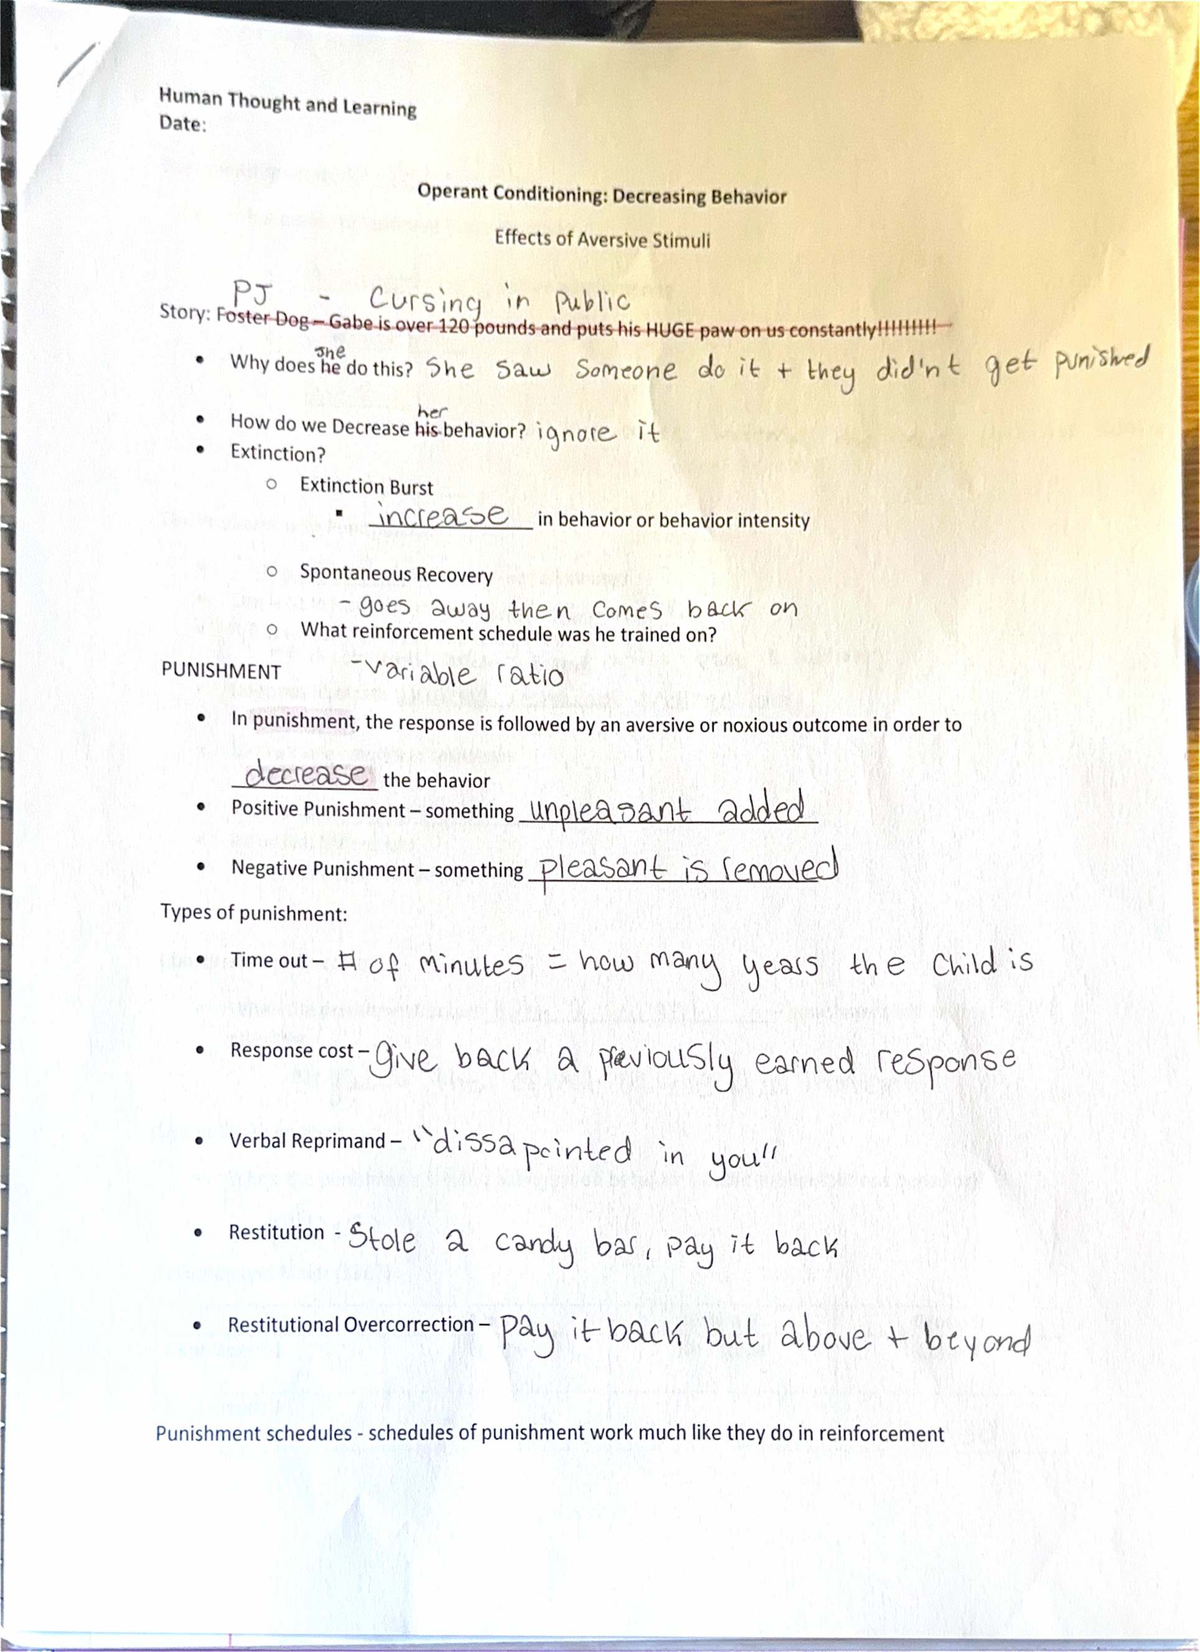 Human Thought and Learning
Date:
Operant Conditioning: Decreasing Behavior
Effects of Aversive Stimuli
PJ - Cursing in Public
Story: Foster Dog – Gabe is over 120 pounds and puts his HUGE paw on us constantly!!!!!!!!!
she
• Why does he do this? She saw someone do it + they didn't get punished
her
• How do we Decrease his behavior? ignore it
• Extinction?
o Extinction Burst
▪ increase in behavior or behavior intensity
o Spontaneous Recovery
- goes away then comes back on
o What reinforcement schedule was he trained on?
PUNISHMENT -variable ratio
• In punishment, the response is followed by an aversive or noxious outcome in order to
decrease the behavior
• Positive Punishment – something unpleasant added
• Negative Punishment – something pleasant is removed
Types of punishment:
• Time out – # of minutes = how many years the child is
• Response cost – give back a previously earned response
• Verbal Reprimand – "dissapointed in you"
• Restitution - Stole a candy bar, pay it back
• Restitutional Overcorrection – pay it back but above + beyond
Punishment schedules - schedules of punishment work much like they do in reinforcement